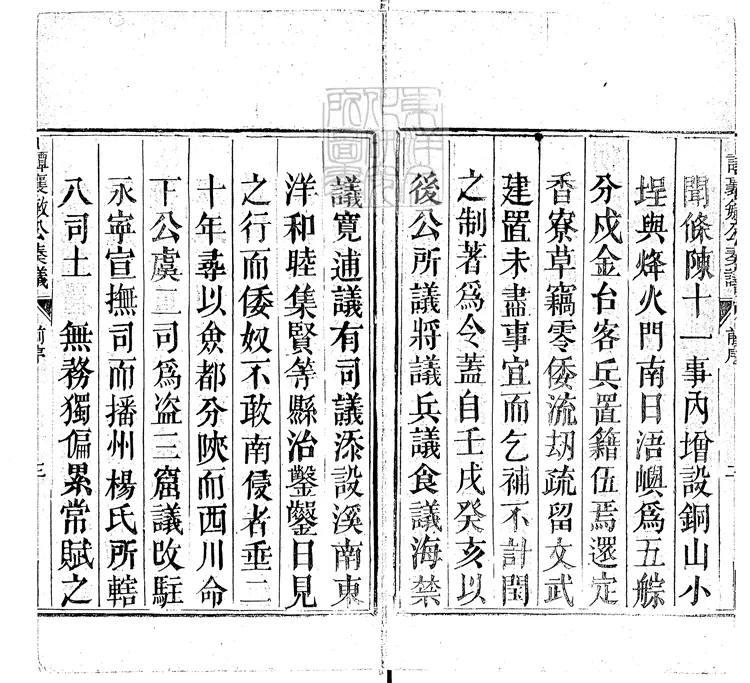 聞條陳十一事內增設銅山小
埕與烽火門南日浯嶼爲五䑸
分戍金台客兵置籍伍焉還定
香寮草竊零倭流刼疏留文武
建置未盡事宜而乞補不計閏
之制著爲令蓋自壬戌癸亥以
後公所議將議兵議食議海禁
議寬逋議有司議添設溪南東
洋和睦集賢等縣治鑿鑿日見
之行而倭奴不敢南侵者垂二
十年尋以僉都分陝而西川命
下公虞二司爲盗三窟議改駐
永寧宣撫司而播州楊氏所轄
八司土 無務獨偏累常賦之
譚襄敏公奏議 前序 三